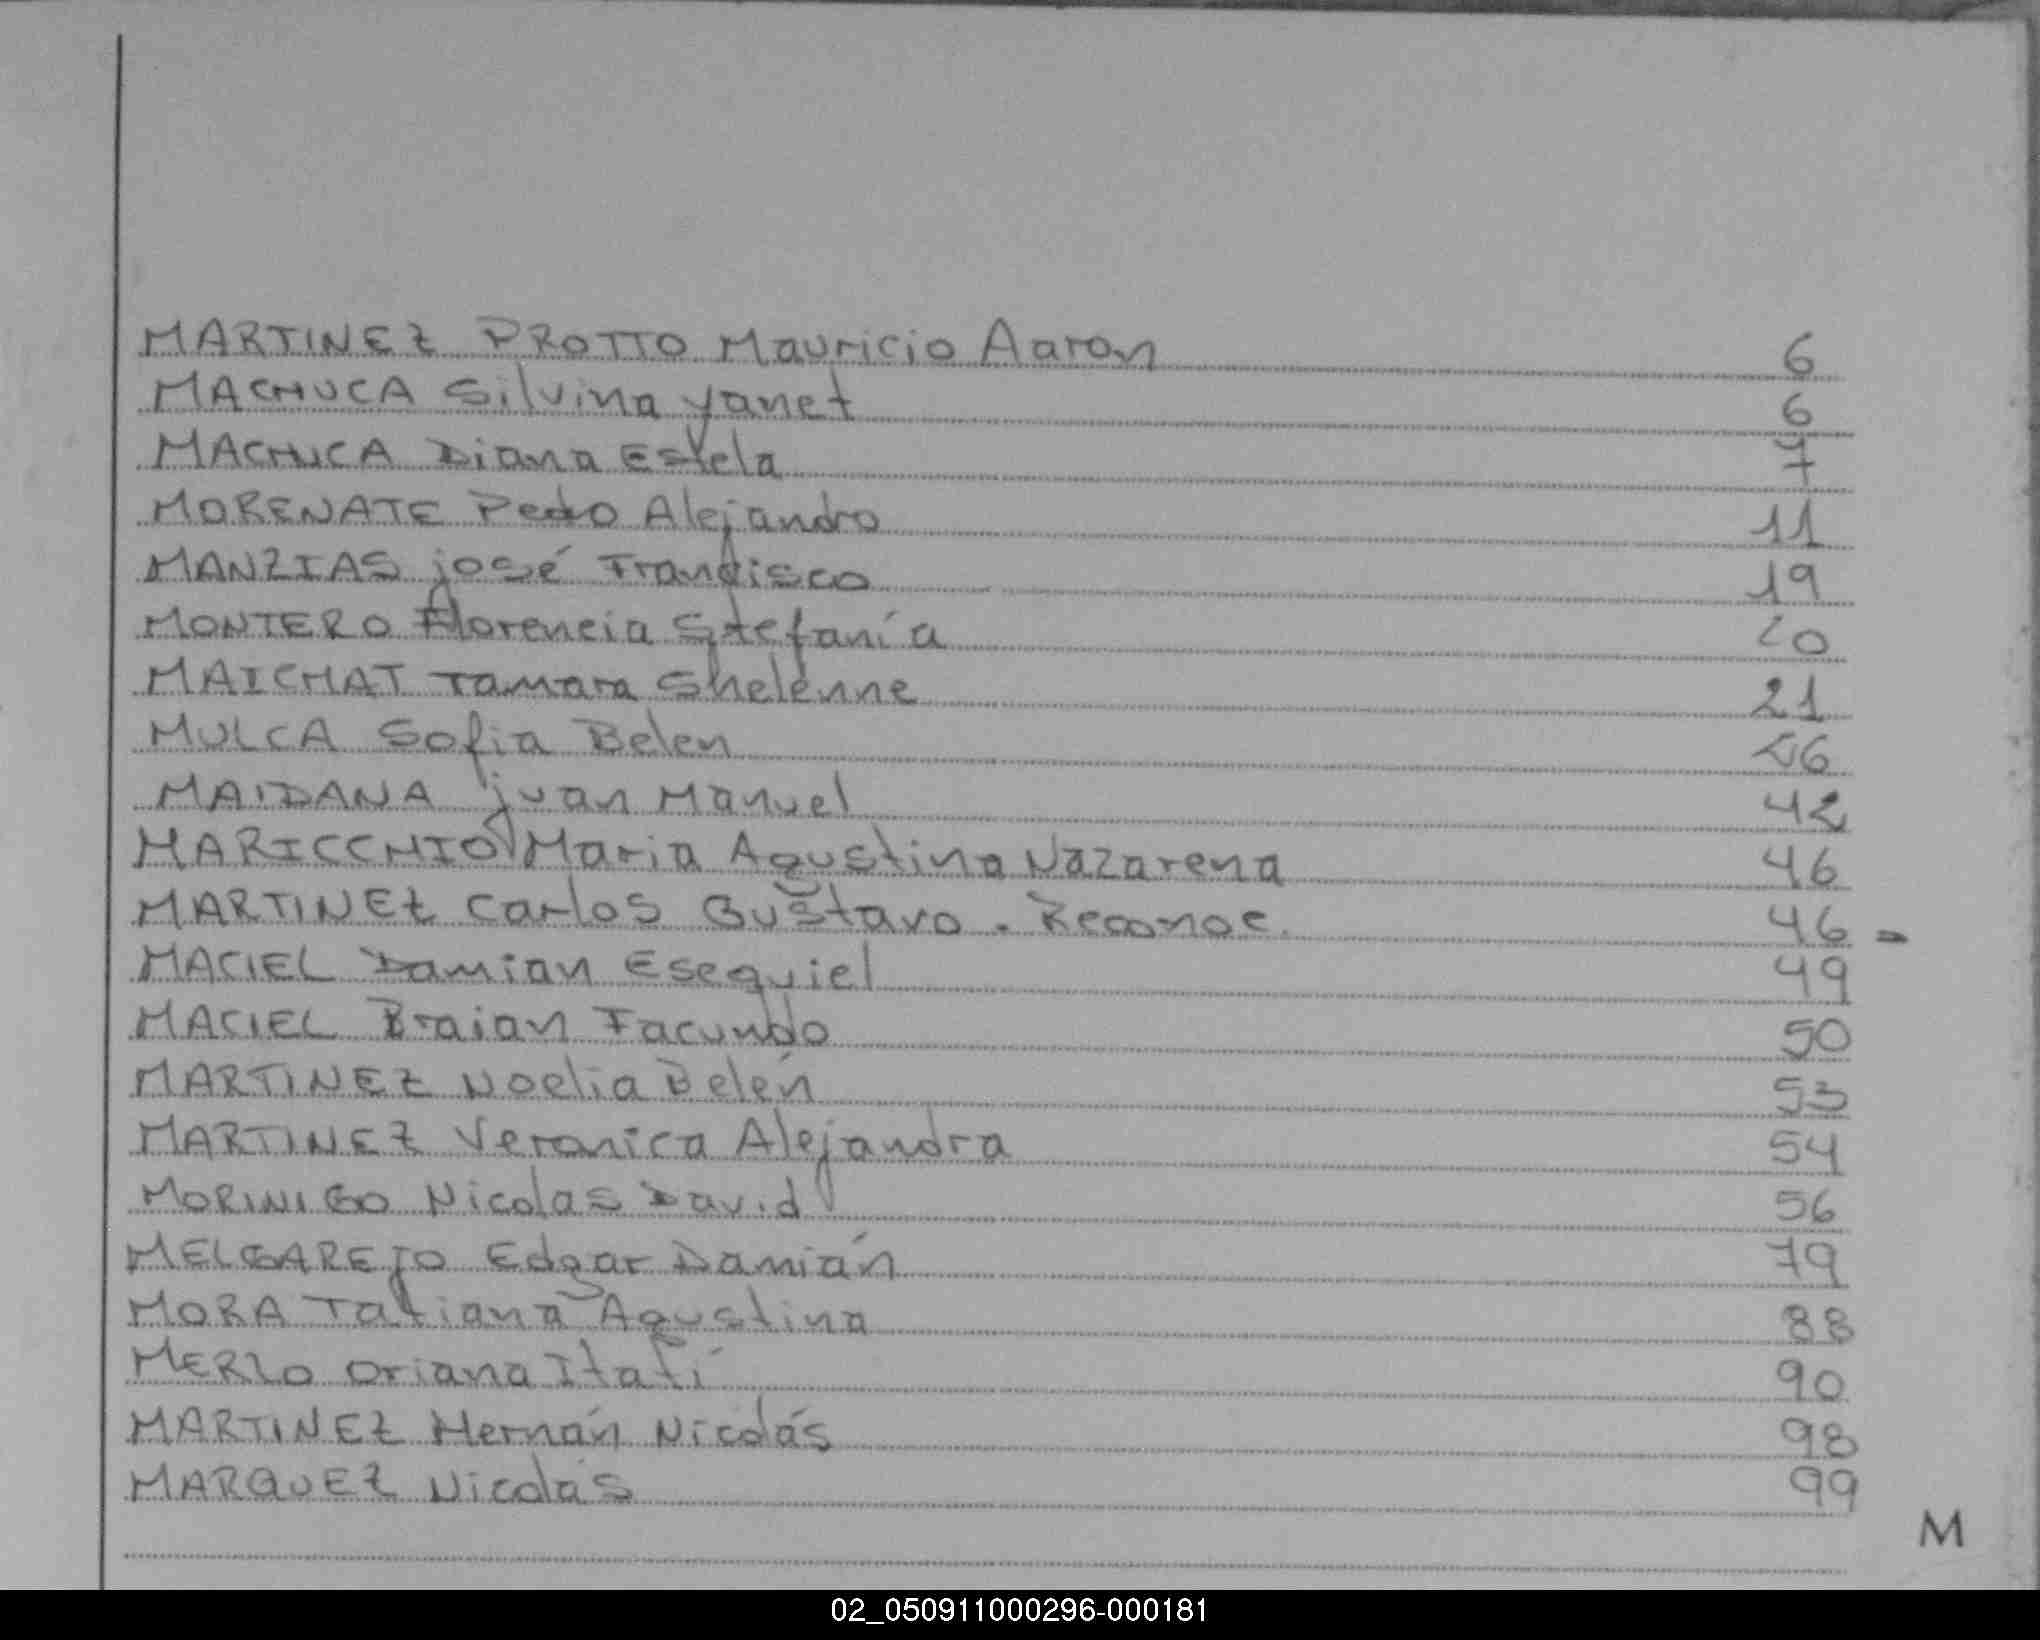 MARTINEZ PROTTO Mauricio Aaron 6
MACHUCA Silvina yanet 6
MACHUCA Diana Estela 7
MORENATE Pedo Alejandro 11
MANZIAS josé Francisco 19
MONTERO Florencia Stefanía 20
MAICHAT Tamara Shelenne 21
MULCA Sofia Belen 26
MAIDANA juan Manuel 42
MARICCHIO Maria Agustina Nazarena 46
MARTINEZ Carlos Gustavo. Reconoc. 46 -
MACIEL Damian Esequiel 49
MACIEL Braian Facundo 50
MARTINEZ Noelia Belén 53
MARTINEZ Veronica Alejandra 54
MORINIGO Nicolas David 56
MELGAREJO Edgar Damián 79
MORA Tatiana Agustina 88
MERLO Oriana Itatí 90
MARTINEZ Hernán Nicolás 98
MARQUEZ Nicolás 99
M
02_050911000296-000181